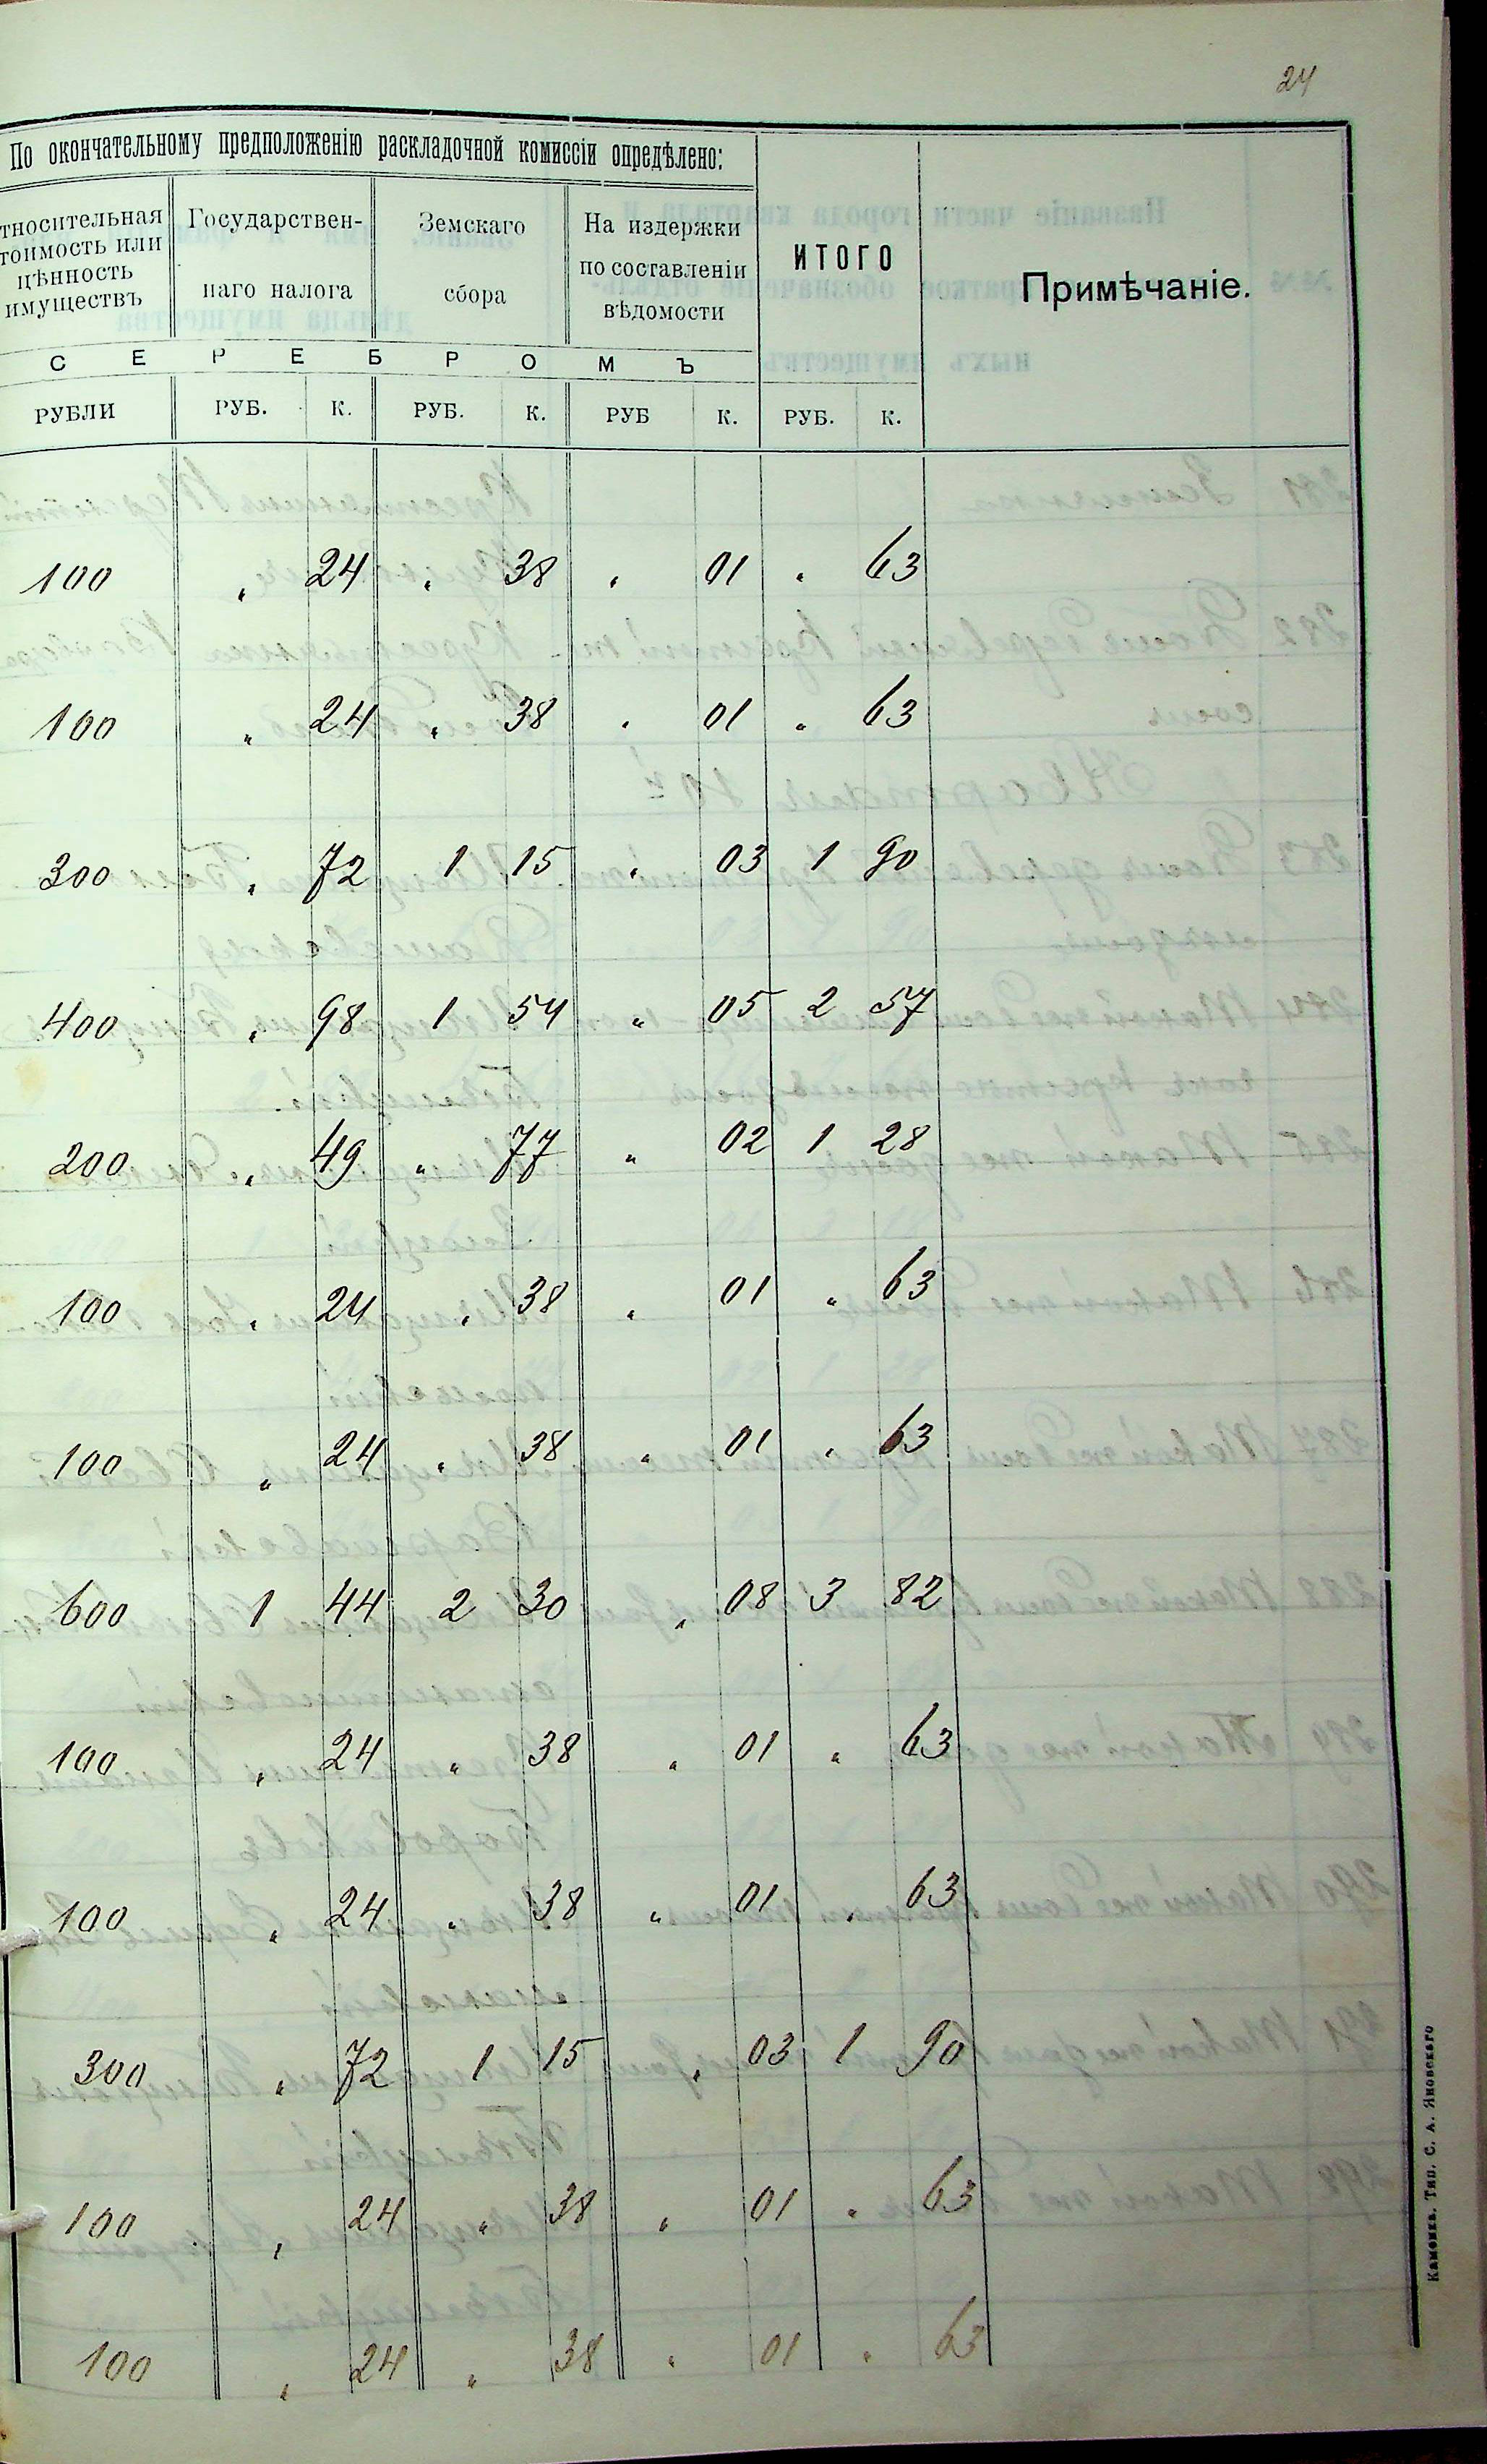 24
По окончательному предположенію раскладочной комиссіи опредѣлено:
тносительная тоимость или цѣнность имуществъ
Государствен-наго налога
Земскаго сбора
На издержки по составленіи вѣдомости
ИТОГО
Примѣчаніе.
С Е Р Е Б Р О М Ъ
РУБЛИ РУБ. К. РУБ. К. РУБ К. РУБ. К.
100 „ 24 „ 38 „ 01 „ 63
100 „ 24 „ 38 „ 01 „ 63
300 „ 72 1 15 „ 03 1 90
400 „ 98 1 54 „ 05 2 57
200 „ 49 „ 77 „ 02 1 28
100 „ 24 „ 38 „ 01 „ 63
100 „ 24 „ 38 „ 01 „ 63
600 1 44 2 30 „ 08 3 82
100 „ 24 „ 38 „ 01 „ 63
100 „ 24 „ 38 „ 01 „ 63
300 „ 72 1 15 „ 03 1 90
100 „ 24 „ 38 „ 01 „ 63
100 „ 24 „ 38 „ 01 „ 63
Каменка. Тип. С. А. Яновскаго